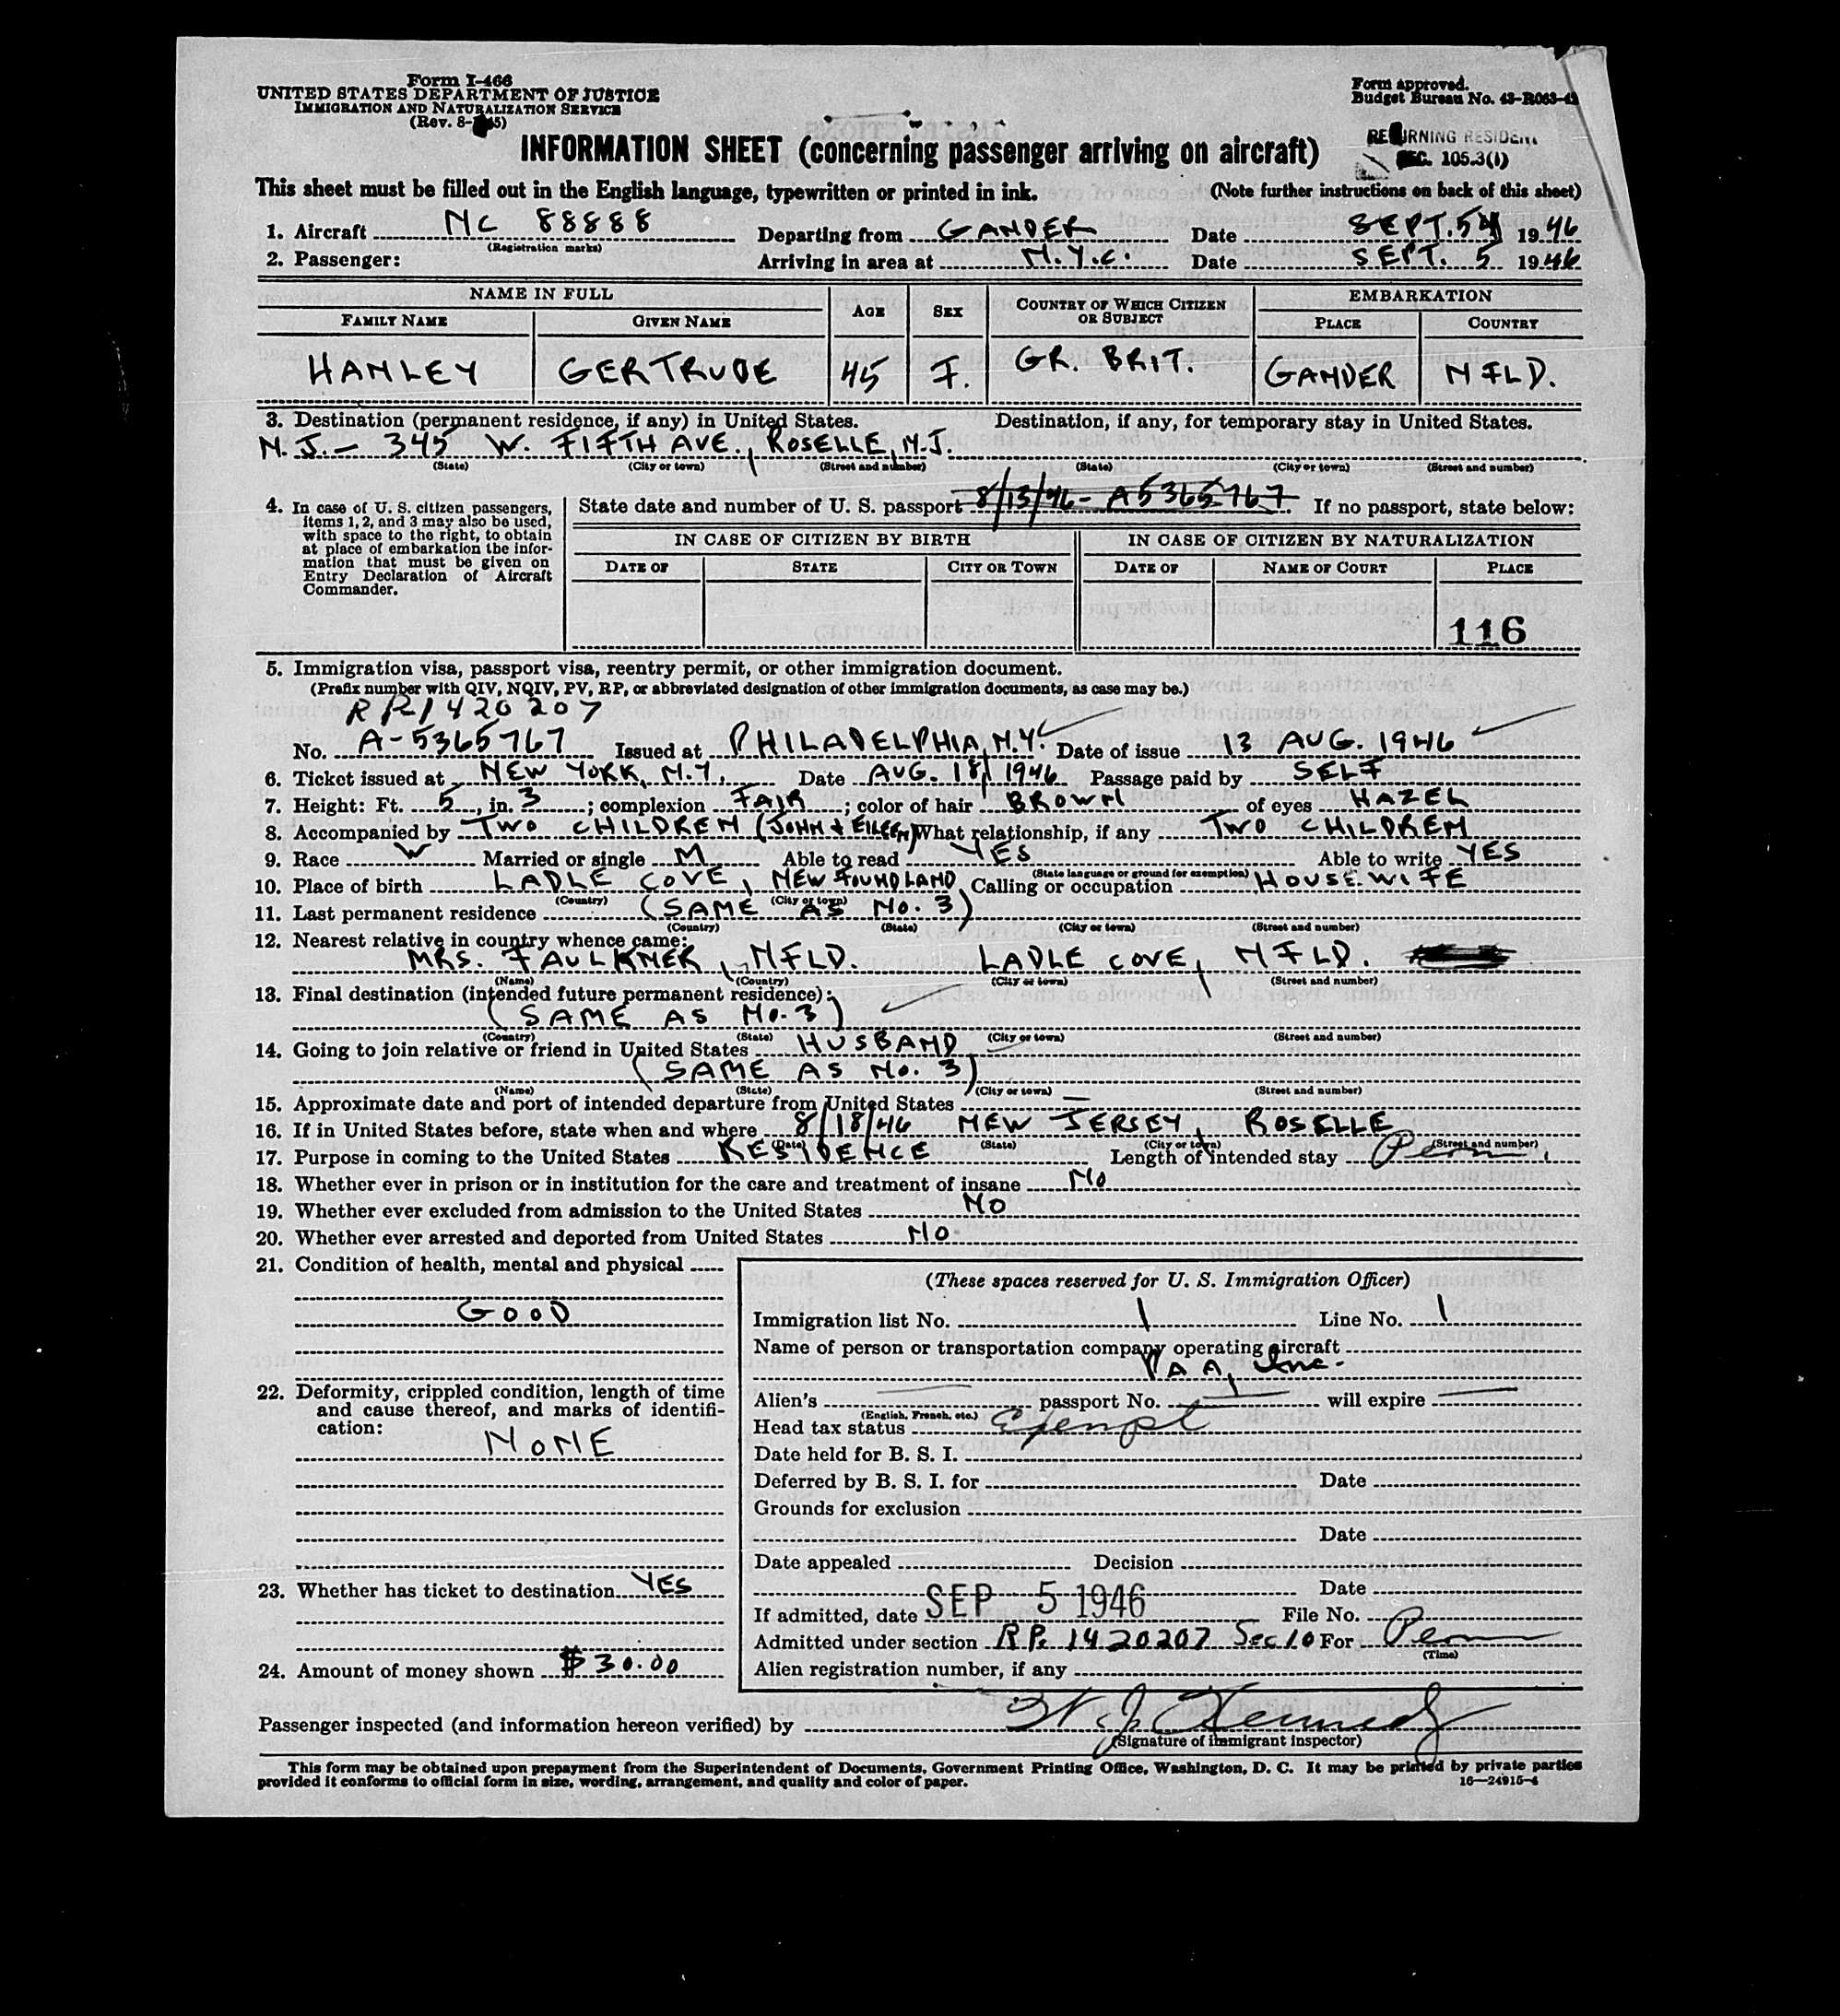 Form I-466
UNITED STATES DEPARTMENT OF JUSTICE
IMMIGRATION AND NATURALIZATION SERVICE
Form approved.
Budget Bureau No. 43-R063-42
INFORMATION SHEET (concerning passenger arriving on aircraft)
SEC. 105.3(1)
This sheet must be filled out in the English language, typewritten or printed in ink. (Note further instructions on back of this sheet)
1. Aircraft NC 88888 Departing from GANDER Date SEPT. 5 1946
(Registration marks)
2. Passenger: Arriving in area at N.Y.C. Date SEPT. 5 1946
NAME IN FULL AGE SEX COUNTRY OF WHICH CITIZEN OR SUBJECT EMBARKATION
FAMILY NAME GIVEN NAME PLACE COUNTRY
HANLEY GERTRUDE 45 F. GR. BRIT. GANDER NFLD.
3. Destination (permanent residence, if any) in United States. Destination, if any, for temporary stay in United States.
N.J. - 345 W. FIFTH AVE., ROSELLE, N.J.
(State) (City or town) (Street and number) (State) (City or town) (Street and number)
4. In case of U. S. citizen passengers,
items 1, 2, and 3 may also be used,
with space to the right, to obtain
at place of embarkation the infor-
mation that must be given on
Entry Declaration of Aircraft
Commander.
State date and number of U. S. passport 8/13/46 - A5365767. If no passport, state below:
IN CASE OF CITIZEN BY BIRTH IN CASE OF CITIZEN BY NATURALIZATION
DATE OF STATE CITY OR TOWN DATE OF NAME OF COURT PLACE
116
5. Immigration visa, passport visa, reentry permit, or other immigration document.
(Prefix number with QIV, NQIV, PV, RP, or abbreviated designation of other immigration documents, as case may be.)
1420207
No. A-5365767 Issued at PHILADELPHIA, N.Y. Date of issue 13 AUG. 1946
6. Ticket issued at NEW YORK, N.Y. Date AUG. 18, 1946 Passage paid by SELF
7. Height: Ft. 5, in. 3; complexion FAIR; color of hair BROWN of eyes HAZEL
8. Accompanied by TWO CHILDREN (JOHN & EILEEN) What relationship, if any TWO CHILDREN
9. Race W Married or single M Able to read YES Able to write YES
(State language or ground for exemption)
10. Place of birth LADLE COVE, NEWFOUNDLAND Calling or occupation HOUSEWIFE
(Country) (City or town)
11. Last permanent residence (SAME AS NO. 3)
(Country) (State) (City or town) (Street and number)
12. Nearest relative in country whence came:
MRS. FAULKNER, NFLD. LADLE COVE, NFLD.
(Name) (Country) (City or town) (Street and number)
13. Final destination (intended future permanent residence):
(SAME AS NO. 3)
(Country) (State) (City or town) (Street and number)
14. Going to join relative or friend in United States HUSBAND
(SAME AS NO. 3)
(Name) (State) (City or town) (Street and number)
15. Approximate date and port of intended departure from United States —
16. If in United States before, state when and where 8/18/46 NEW JERSEY, ROSELLE
(Date) (State) (City or town) (Street and number)
17. Purpose in coming to the United States RESIDENCE Length of intended stay Perm.
18. Whether ever in prison or in institution for the care and treatment of insane NO
19. Whether ever excluded from admission to the United States NO
20. Whether ever arrested and deported from United States NO
21. Condition of health, mental and physical
GOOD
22. Deformity, crippled condition, length of time
and cause thereof, and marks of identifi-
cation:
NONE
23. Whether has ticket to destination YES
24. Amount of money shown $30.00
(These spaces reserved for U. S. Immigration Officer)
Immigration list No. 1 Line No. 1
Name of person or transportation company operating aircraft
PAA, Inc.
Alien's passport No. will expire
(English, French, etc.)
Head tax status Exempt
Date held for B. S. I.
Deferred by B. S. I. for Date
Grounds for exclusion
Date
Date appealed Decision
Date
If admitted, date SEP 5 1946 File No.
Admitted under section R.P. 1420207 Sec 10 For Perm
(Time)
Alien registration number, if any
Passenger inspected (and information hereon verified) by W. J. Kennedy
(Signature of immigrant inspector)
This form may be obtained upon prepayment from the Superintendent of Documents, Government Printing Office, Washington, D. C. It may be printed by private parties
provided it conforms to official form in size, wording, arrangement, and quality and color of paper. 16—24915-4